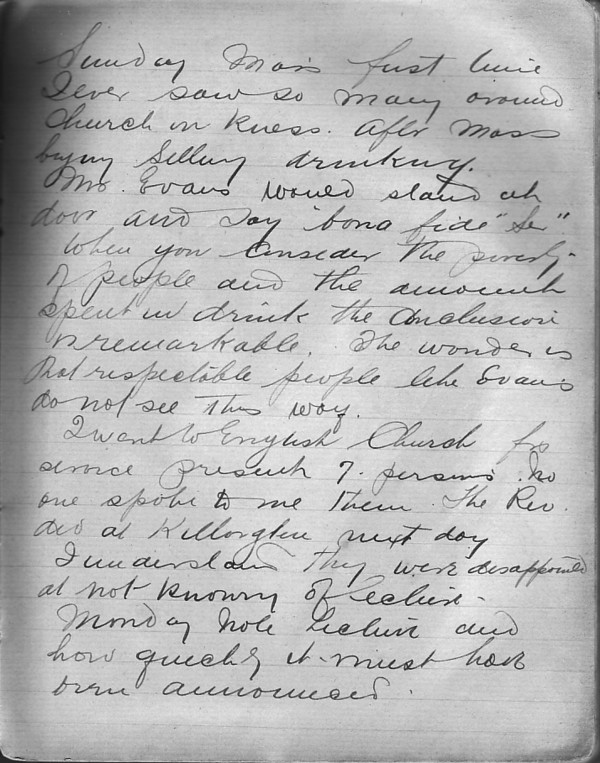 Sunday Mass first time
I ever saw so many around
Church on knees. After Mass
buying Selling drinking.
Mr. Evans would stand at
door and say "bona fide" "Sir".
When you consider the poverty
of people and the amount
spent in drink the Conclusion
is remarkable. The wonder is
that respectable people like Evans
do not see this way.
I went to English Church for
service present 7. persons. No
one spoke to me then. The Rev.
did at Killorglin next day
I understand they were disappointed
at not knowing of lecture.
Monday Note Lecture and
how quickly it must have
been announced.